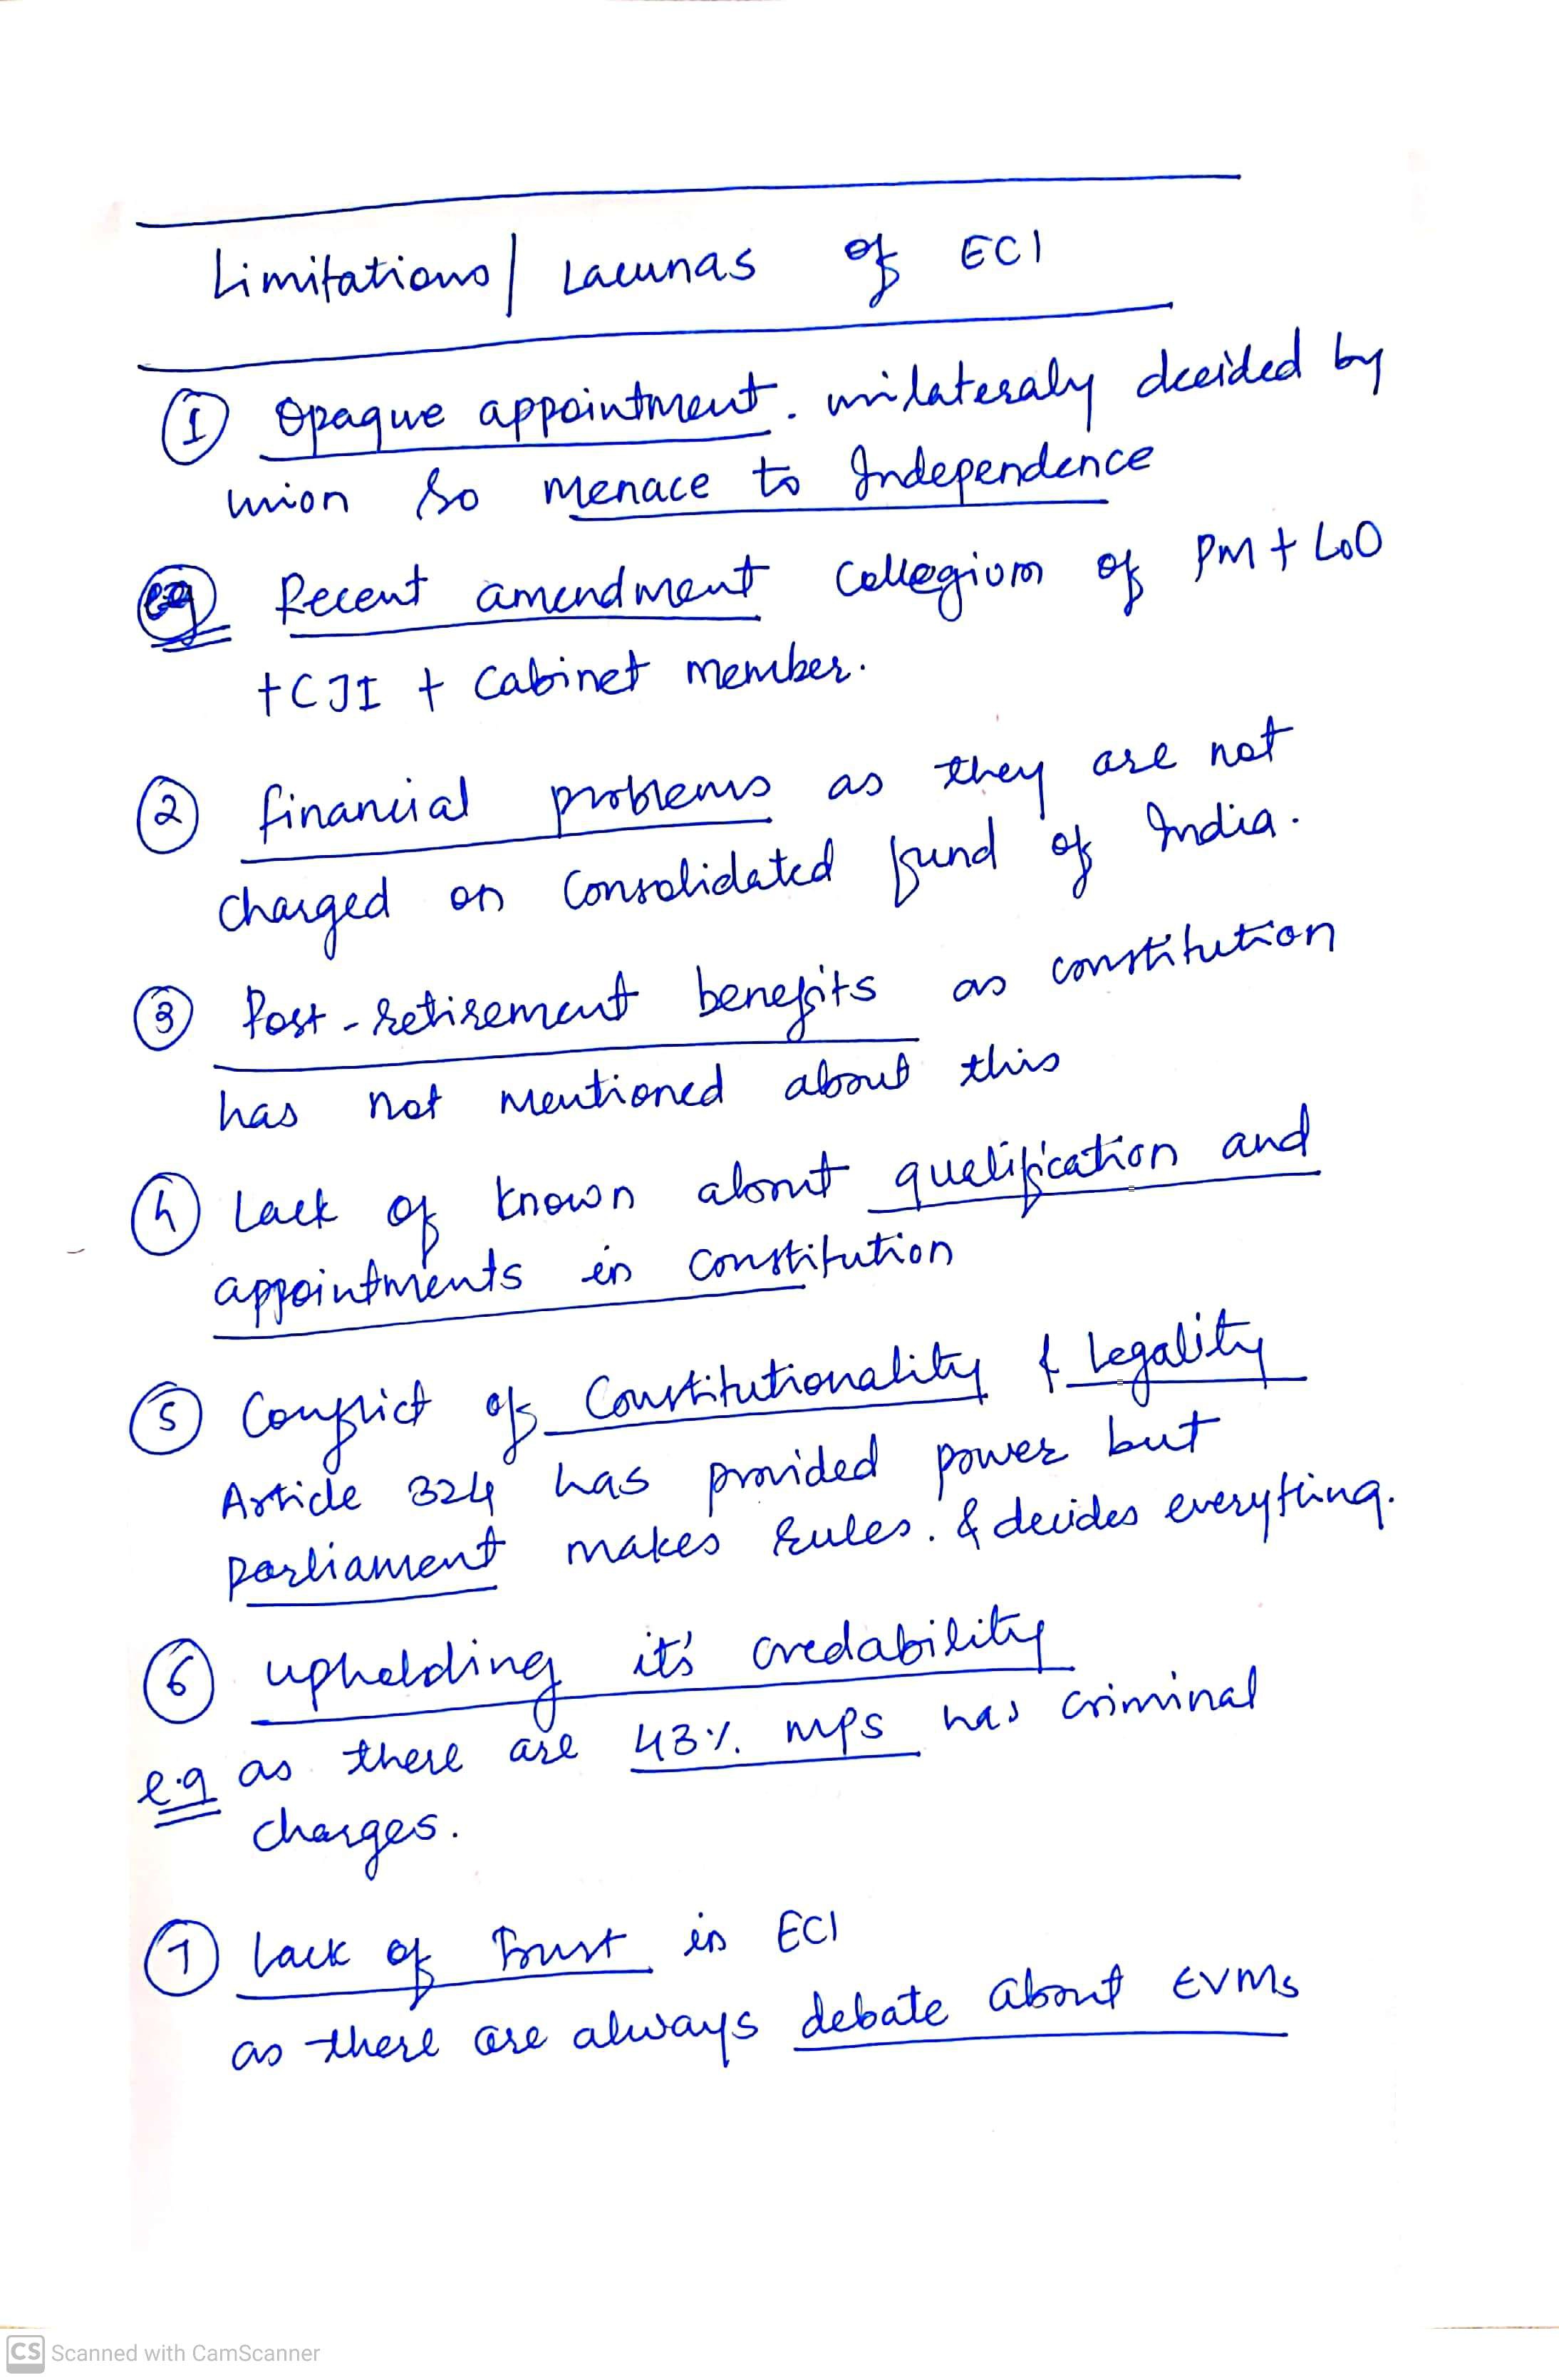 Limitations/ Lacunas of ECI
① Opaque appointment. unilateraly decided by
union so menace to Independence
eg Recent amendment Collegium of PM + LoO
+ CJI + Cabinet member.
② financial problems as they are not
charged on Consolidated fund of India.
③ Post-retirement benefits as constitution
has not mentioned about this
④ Lack of known about qualification and
appointments in constitution
⑤ Conflict of Constitutionality & Legality
Article 324 has provided power but
Parliament makes rules. & decides everything.
⑥ upholding it's credability
e.g as there are 43% MPs has criminal
charges.
⑦ Lack of Trust in ECI
as there are always debate about EVMs
CS Scanned with CamScanner